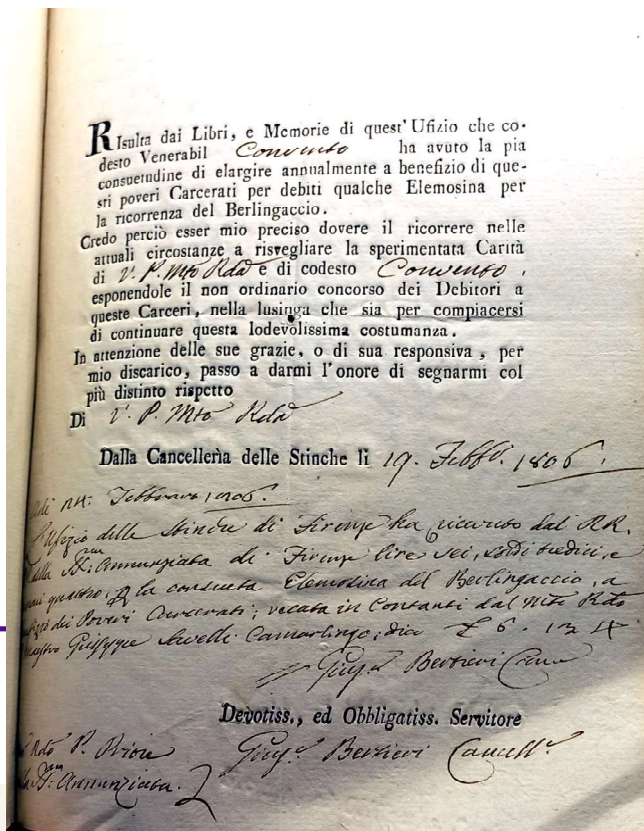 RIsulta dai Libri, e Memorie di quest' Ufizio che co-
desto Venerabil Convento ha avuto la pia
consuetudine di elargire annualmente a benefizio di que-
sti poveri Carcerati per debiti qualche Elemosina per
la ricorrenza del Berlingaccio.
Credo perciò esser mio preciso dovere il ricorrere nelle
attuali circostanze a risvegliare la sperimentata Carità
di V. P. Mto Rda e di codesto Convento,
esponendole il non ordinario concorso dei Debitori a
queste Carceri, nella lusinga che sia per compiacersi
di continuare questa lodevolissima costumanza.
In attenzione delle sue grazie, o di sua responsiva, per
mio discarico, passo a darmi l'onore di segnarmi col
più distinto rispetto
Di V. P. Mto Rda
Dalla Cancellerìa delle Stinche li 19. Febb. 1806.
Febbraro 1806.
Ufizio delle Stinche di Firenze ha ricevuto dai RR.
della SS. Annunziata di Firenze lire sei, soldi tredici, e
quattro, la consueta Elemosina del Berlingaccio, a
dei Poveri Carcerati; recata in Contanti dal Mto Rdo
Giuseppe Camarlingo, dico £ 6. 13. 4
Gius. Berzieri Canc
Devotiss., ed Obbligatiss. Servitore
Rdo P. Priore Gius. Berzieri Cancell.
SS. Annunziata.